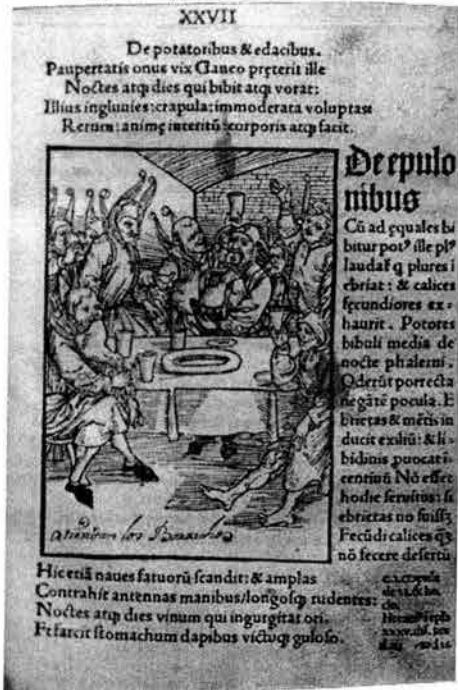 XXVII
De potatoribus & edacibus.
Paupertatis onus vix Ganeo pręterit ille
Noctes atqꝫ dies qui bibit atqꝫ vorat:
Illius ingluuies: crapula: immoderata voluptas
Rerum: animę interitū: corporis atqꝫ facit.
De epulo
nibus
Cū ad ęquales bi
bitur ille
plures i
ebriat: & calices
fęcundiores ex-
haurit. Potores
bibuli media de
nocte phalerni.
Oderūt porrecta
negātē pocula. E
brietas & mētis in
ducit exiliū: & li-
bidinis ꝓuocat i
Nō esset
hodie seruitus: si
ebrietas nō fuissꝫ
Fecūdi calices
nō fecere desertū.
los
Hic etiā naues fatuorū scandit: & amplas
Contrahit antennas manibus/longosqꝫ rudentes:
Noctes atqꝫ dies vinum qui ingurgitat ori.
Et farcit stomachum dapibus victuqꝫ guloso.